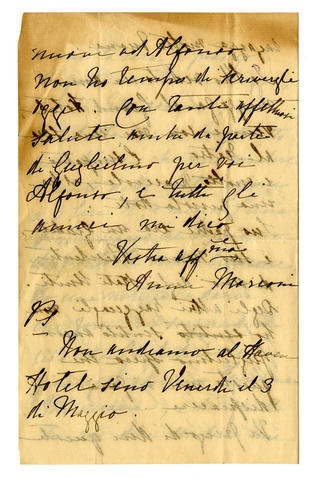 nuove ad Alfonso
non ho tempo di scrivergli
oggi. Con tanti affettuosi
saluti anche da parte
di Guglielmo per voi
Alfonso, e tutti gli
amici mi dico
Vostra aff.ma
Annie Marconi
Ps
Non andiamo al Haven
Hotel sino Venerdì il 3
di Maggio.